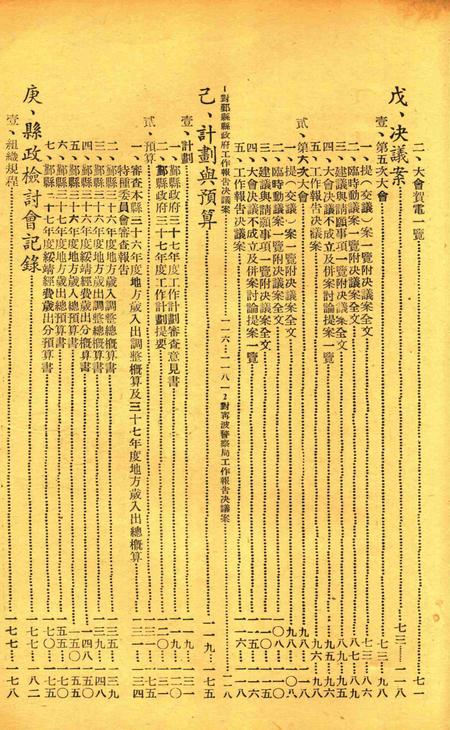 二、大會賀電一覽……七一
戊、決議案……七三——一一八
壹、第五次大會……七三——九八
一、提(交議)案一覽附決議案全文……七三——八六
二、臨時動議案一覽附決議案全文……八七——八九
三、建議與請願事項一覽附決議案全文……八九——九五
四、大會決議不成立及併案討論提案一覽……九五——九六
五、工作報告決議案……九六——九八
貳、第六次大會……九八——一一八
一、提(交議)案一覽附決議案全文……九八——一〇八
二、臨時動議案一覽附決議案全文……一〇八——一一〇
三、建議與請願事項一覽附決議案全文……一一〇——一一五
四、大會決議不成立及併案討論提案一覽……一一五——一一六
五、工作報告決議案……一一六——一一八
1對鄞縣縣政府工作報告決議案……一一六——一一八 2對寧波警察局工作報告決議案……一一八
己、計劃與預算……一一九——一七五
壹、計劃……一一九——一三一
一、鄞縣縣政府三十七年度工作計劃審查意見書……一一九——一二〇
二、鄞縣縣政府三十七年度工作計劃提要……一二〇——一三一
貳、預算……一三一——一七五
一、審查本縣三十六年度地方歲入出調整概算及三十七年度地方歲入出總概算
特種委員會審查報告……一三一——一三四
二、鄞縣三十六年度地方歲入調整總概算書……一三五——一三九
三、鄞縣三十六年度地方歲出調整總概算書……一三九——一四八
四、鄞縣三十六年度綏靖經費歲出分概算書……一四八——一五〇
五、鄞縣三十七年度地方歲入總預算書……一五〇——一五五
六、鄞縣三十七年度地方歲出總預算書……一五五——一七〇
七、鄞縣三十七年度綏靖經費歲出分預算書……一七〇——一七五
庚、縣政檢討會記錄……一七七——一八二
壹、組織規程……一七七——一七八